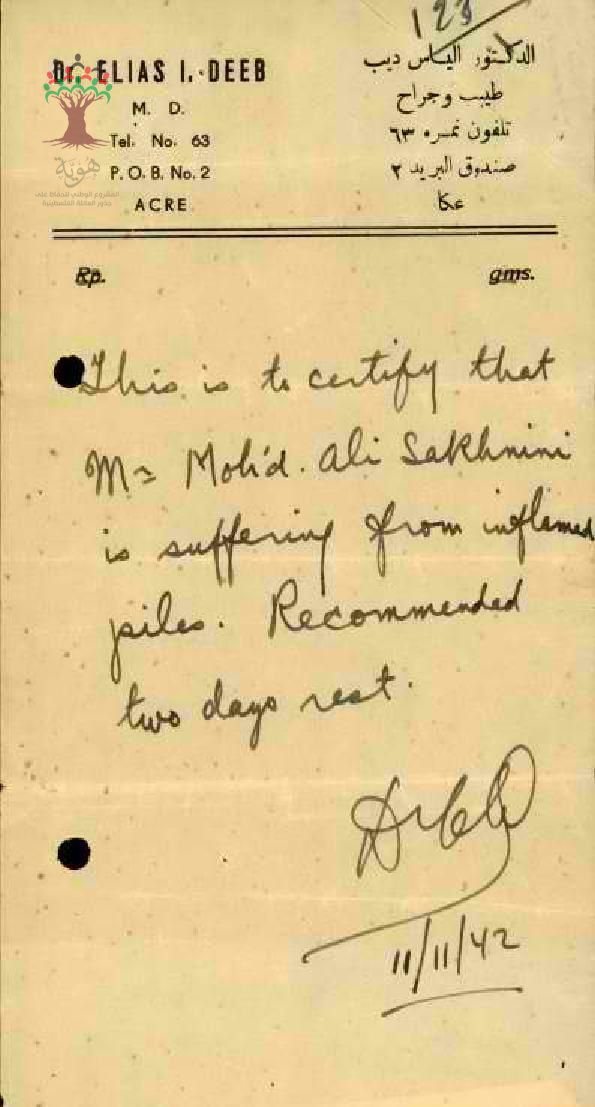 123
Dr. ELIAS I. DEEB
M. D.
Tel. No. 63
P.O.B. No. 2
ACRE
الدكتور الياس ديب
طبيب وجراح
تلفون نمره ٦٣
صندوق البريد ٢
عكا
هوية
المشروع الوطني للحفاظ على
جذور العائلة الفلسطينية
Rp.
gms.
This is to certify that
Mr Moh'd. Ali Sakhnini
is suffering from inflamed
piles. Recommended
two days rest.
11/11/42